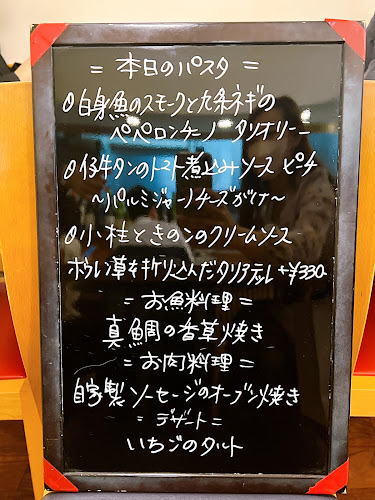 = 本日のパスタ =
○白身魚のスモークと九条ネギの
ペペロンチーノ タリオリーニ
○仔牛タンのトマト煮込みソース ピーチ
〜パルミジャーノチーズがけ〜
○小柱ときのこのクリームソース
ホウレン草を練り込んだタリアテッレ +¥330-
= お魚料理 =
真鯛の香草焼き
= お肉料理 =
自家製ソーセージのオーブン焼き
= デザート =
いちごのタルト